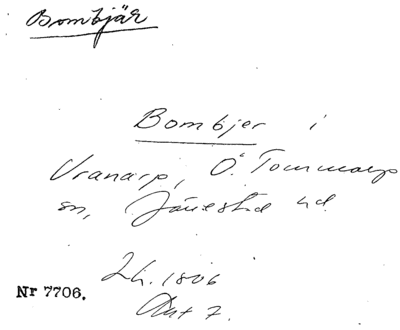 Bombjär
Bombjer i
Vranarp, Ö. Tommarps
sn, Järrestad hd.
Lh. 1806
Akt 7.
Nr 7706.